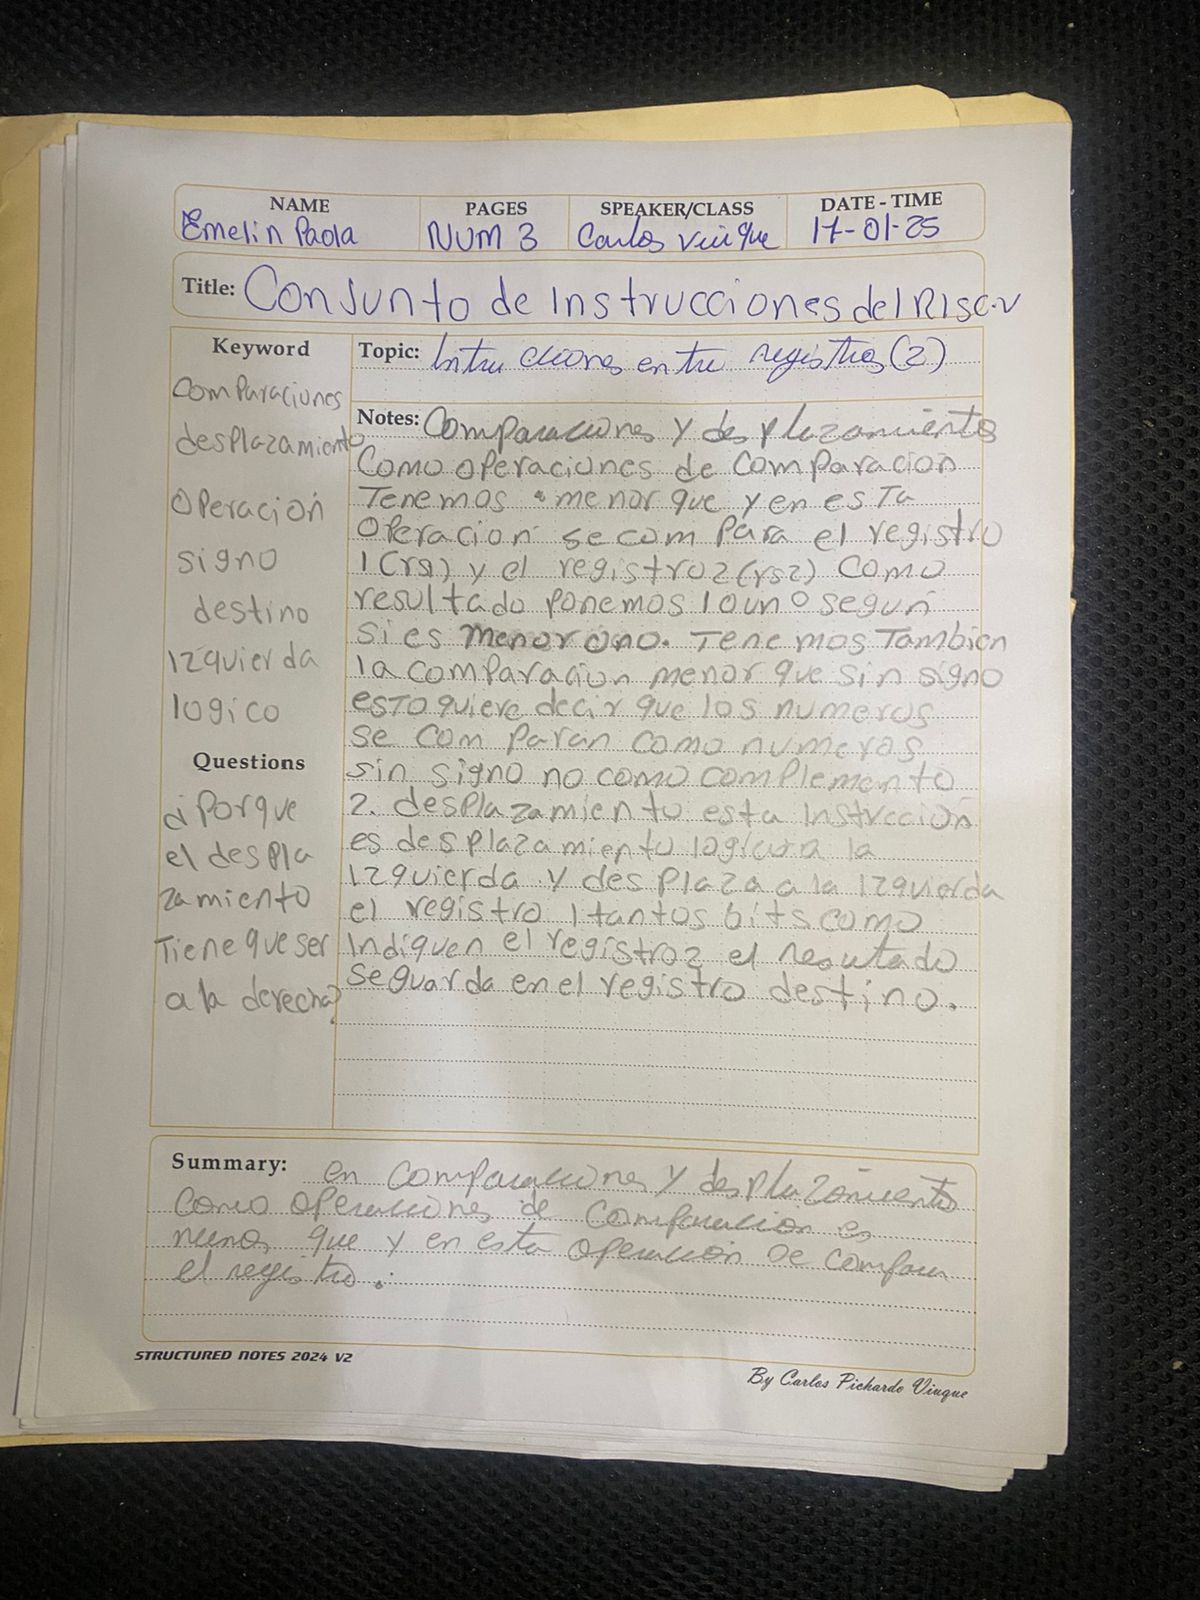 NAME
PAGES
SPEAKER/CLASS
DATE - TIME
Emelin Paola
NUM 3
Carlos
17-01-25
Title: Conjunto de Instrucciones del RISC-V
Keyword
Comparaciones
desplazamiento
Operación
signo
destino
Izquierda
logico
Questions
¿Porque
el despla
zamiento
Tiene que ser
a la derecha?
Topic: Intrucciones entre registros (2)
Notes: Comparaciones y desplazamiento
Como operaciones de comparacion
Tenemos • menor que y en esta
operacion se compara el registro
1(rs1) y el registro 2(rs2) como
resultado ponemos 1 o un 0 según
si es menor o no. Tenemos Tambien
la comparacion menor que sin signo
esto quiere decir que los numeros
se comparan como numeros
sin signo no como complemento
2. desplazamiento esta Instrucción
es desplazamiento logico a la
izquierda y desplaza a la izquierda
el registro 1 tantos bits como
Indiquen el registro2 el resutado
se guarda en el registro destino.
Summary: en comparaciones y desplazamiento
como operaciones de comparacion es
que y en esta operacion se compara
el registro.
STRUCTURED NOTES 2024 V2
By Carlos Pichardo Viuque